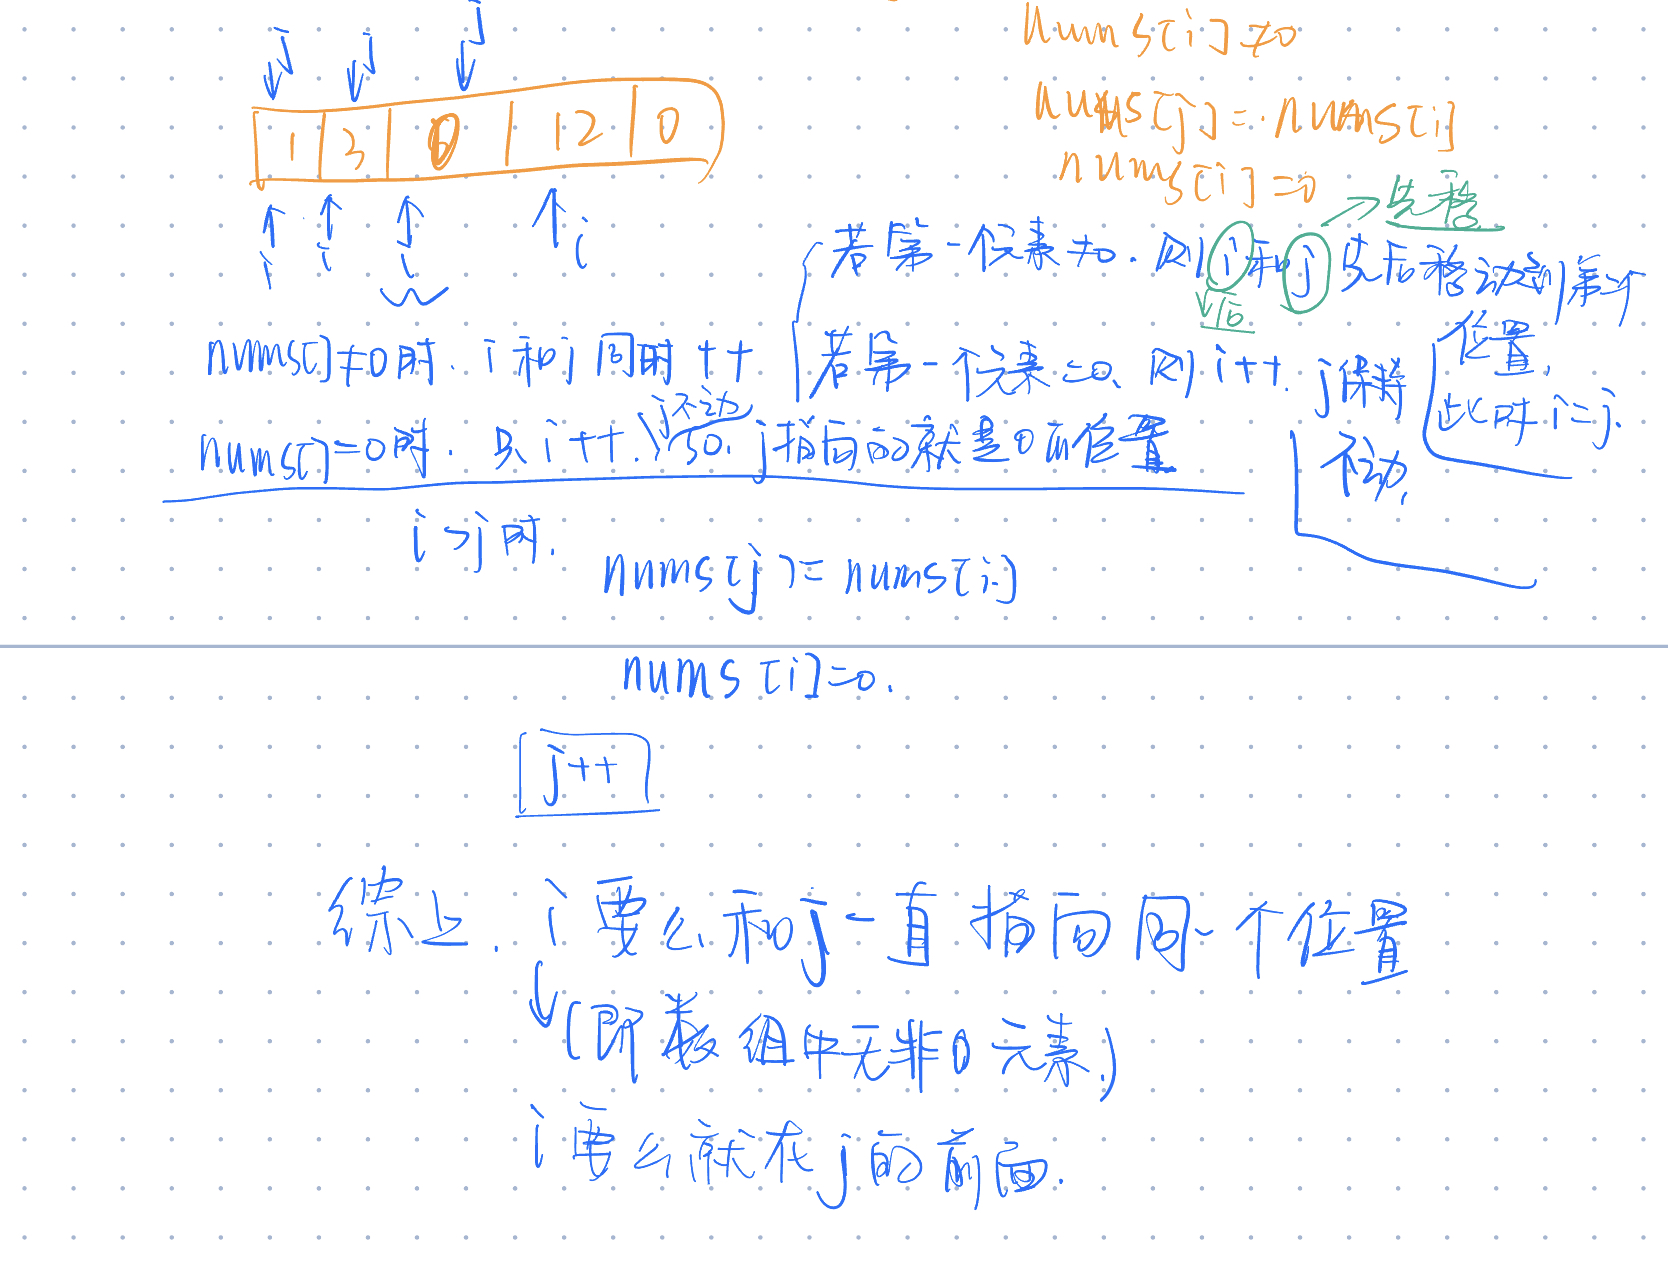 nums[i]≠0
nums[j]=nums[i]
nums[i]=0
j j j
1 3 0 12 0
i i i i
先移
若第一个元素≠0. 则 i 和 j 先后移动到第二个
后
位置,
此时 i=j.
若第一个元素=0, 则 i++. j 保持
不动.
nums[]≠0时. i 和 j 同时 ++
nums[]=0时. 只 i++. j不动 so. j指向的就是0的位置
i>j 时.
nums[j]=nums[i]
nums[i]=0.
j++
综上. i 要么和 j 一直指向同一个位置
(即数组中无非0元素)
i 要么就在 j 的前面.